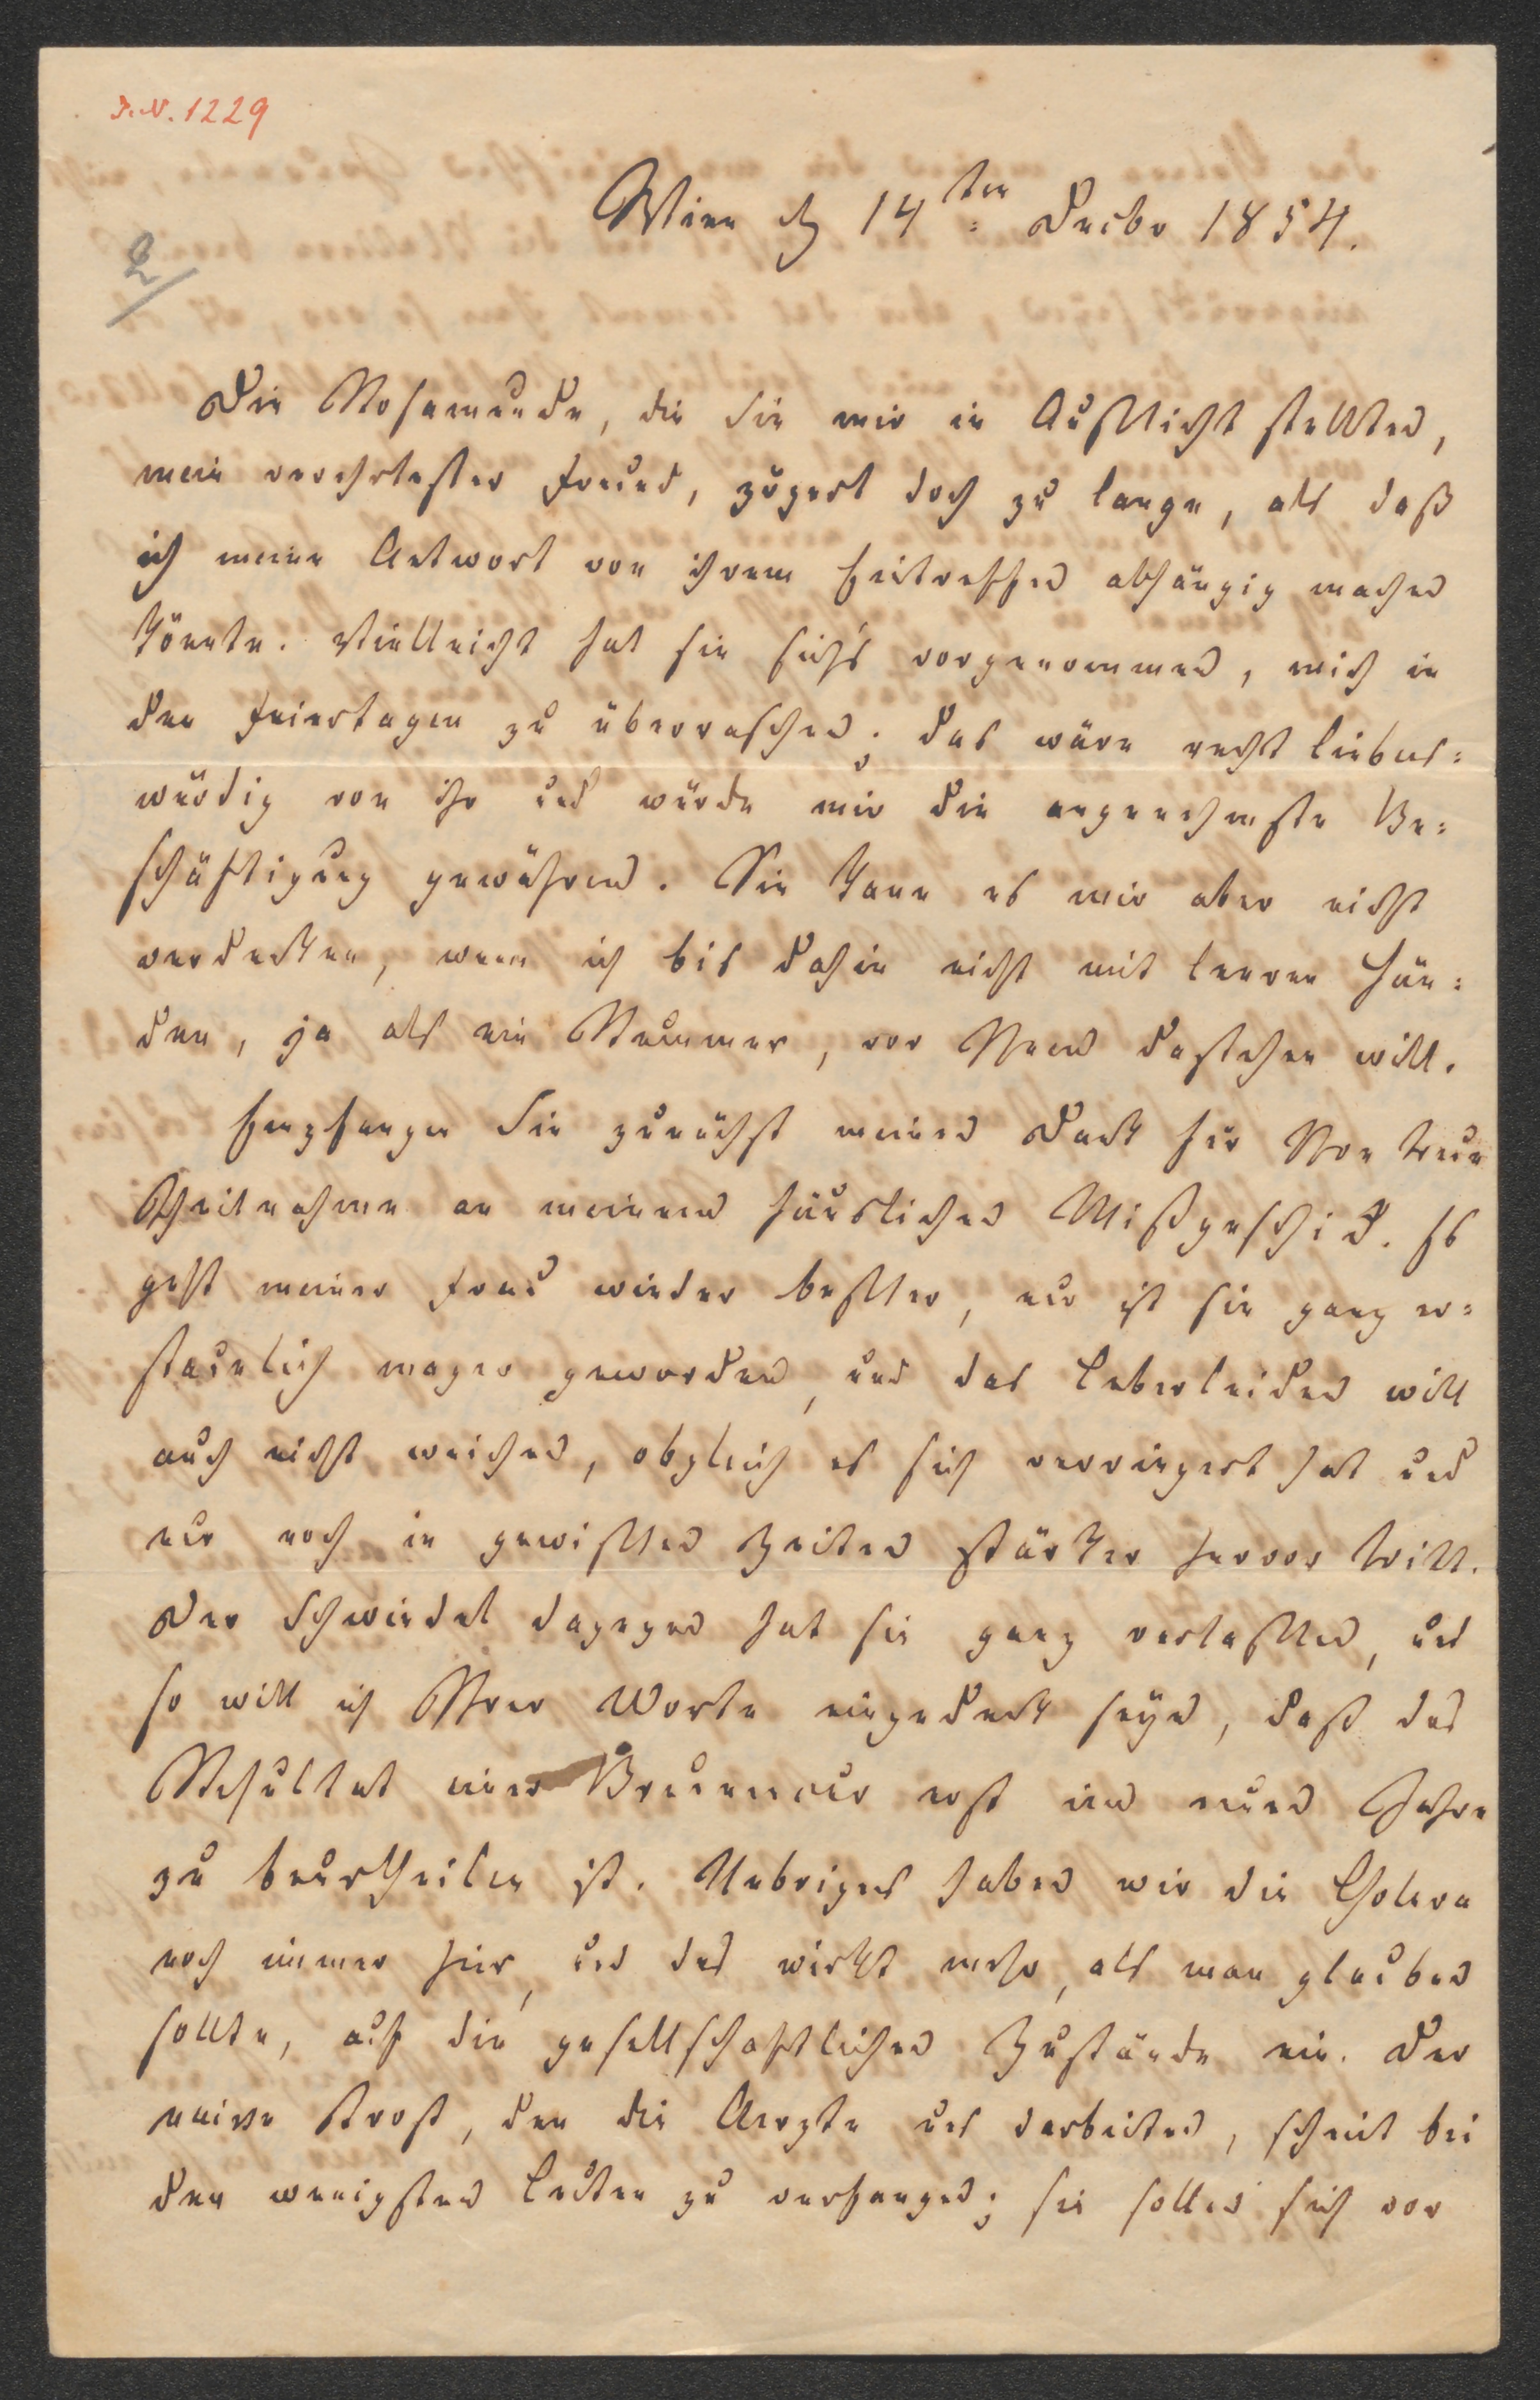 J. N. 1229
Wien d 14ten Decbr 1854.
2/
Die Rosamunde, die Sie mir in Aussicht stellten,
mein verehrtester Freund, zögert doch zu lange, als daß
ich meine Antwort von ihrem Eintreffen abhängig machen
könnte. Vielleicht hat sie sich's vorgenommen, mich in
den Feiertagen zu überraschen; das wäre recht liebens=
würdig von ihr und würde mir die angenehmste Be=
schäftigung gewähren. Sie kann es mir aber nicht
verdenken, wenn ich bis dahin nicht mit leeren Hän=
den, ja als ein Stummer, vor Ihnen dastehen will.
Empfangen Sie zunächst meinen Dank für Ihre treue
Theilnahme an meinem häuslichen Mißgeschick. Es
geht meiner Frau wieder besser, nur ist sie ganz er=
staunlich mager geworden, und das Leberleiden will
auch nicht weichen, obgleich es sich verringert hat und
nur noch in gewissen Zeiten stärker hervor tritt.
Der Schwindel dagegen hat sie ganz verlassen, und
so will ich Ihrer Worte eingedenk seyn, daß das
Resultat einer Brunnencur erst im neuen Jahre
zu beurtheilen ist. Uebrigens haben wir die Cholera
noch immer hier, und das wirkt mehr, als man glauben
sollte, auf die gesellschaftlichen Zustände ein. Der
naive Trost, den die Aerzte uns darbieten, scheint bei
den wenigsten Leuten zu verfangen; sie sollen sich vor